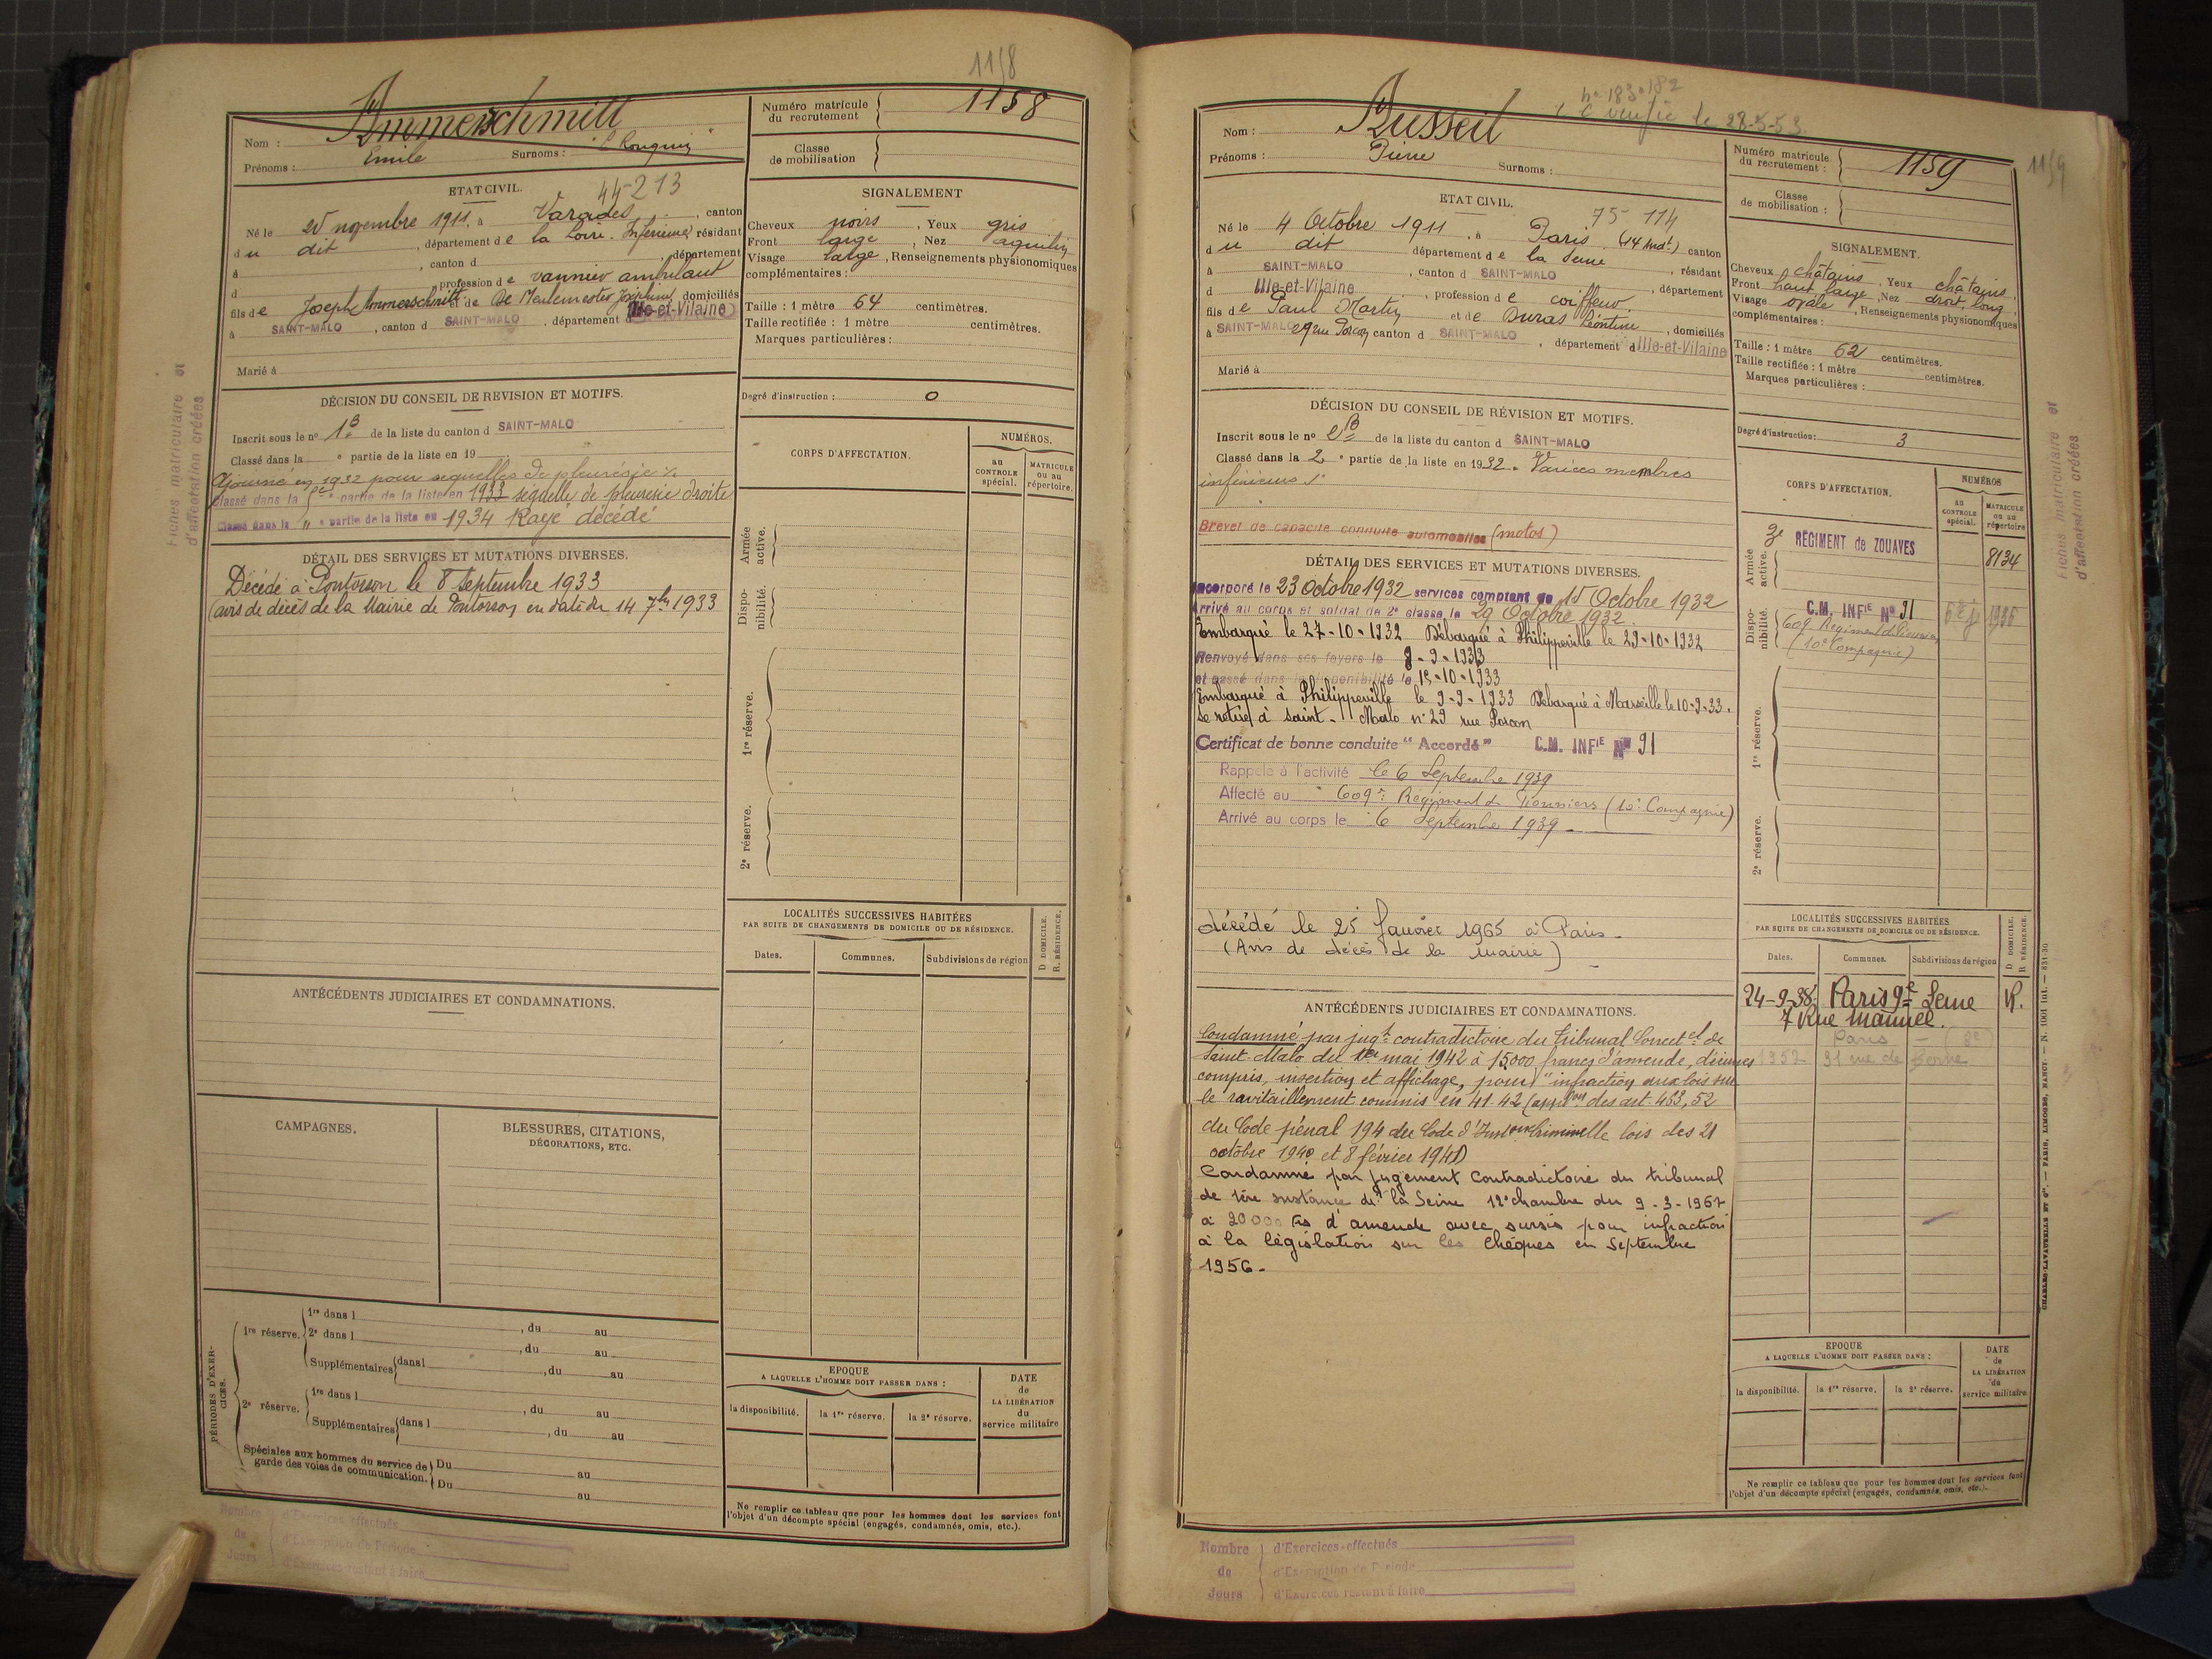 1158
Nom : Ammerschmitt
Prénoms : Emile Surnoms :
Numéro matricule du recrutement 1158
Classe de mobilisation
ETAT CIVIL.
44-213
Né le novembre 1911, à Varades, canton
du dit, département de la Loire-Inférieure, résidant
à , canton d , département
d , profession de vannier ambulant
fils de Joseph Ammerschmitt et de De Meulemester Joséphine, domiciliés
à SAINT-MALO, canton d SAINT-MALO, département d Ille-et-Vilaine
Marié à
SIGNALEMENT
Cheveux noirs, Yeux gris
Front large, Nez aquilin
Visage large, Renseignements physionomiques
complémentaires :
Taille : 1 mètre 64 centimètres.
Taille rectifiée : 1 mètre centimètres.
Marques particulières :
Degré d'instruction : 0
Fiches matriculaire et
d'affectation créées
DÉCISION DU CONSEIL DE REVISION ET MOTIFS.
Inscrit sous le nº 1B de la liste du canton d SAINT-MALO
Classé dans la e partie de la liste en 19
Ajourné en 1932 pour sequelles de pleurésie
Classé dans la partie de la liste en 1933 sequelle de pleuresie droite
Classé dans la " e partie de la liste en 1934 Rayé décédé
DÉTAIL DES SERVICES ET MUTATIONS DIVERSES.
Décédé à Pontorson le 8 Septembre 1933
(avis de décès de la Mairie de Pontorson en date du 14 7bre 1933
CORPS D'AFFECTATION.
NUMÉROS.
au CONTROLE spécial.
MATRICULE ou au répertoire.
Armée active.
Disponibilité.
1re réserve.
2e réserve.
LOCALITÉS SUCCESSIVES HABITÉES
PAR SUITE DE CHANGEMENTS DE DOMICILE OU DE RÉSIDENCE.
D DOMICILE.
R. RÉSIDENCE.
Dates. Communes. Subdivisions de région
ANTÉCÉDENTS JUDICIAIRES ET CONDAMNATIONS.
CAMPAGNES.
BLESSURES, CITATIONS,
DÉCORATIONS, ETC.
PÉRIODES D'EXERCICES.
1re réserve.
1re dans l , du au
2e dans l , du au
Supplémentaires dans l , du au
2e réserve.
1re dans l , du au
Supplémentaires dans l , du au
Spéciales aux hommes du service de garde des voies de communication.
Du au
Du au
EPOQUE
A LAQUELLE L'HOMME DOIT PASSER DANS :
la disponibilité. la 1re réserve. la 2e réserve.
DATE
de
LA LIBÉRATION
du
service militaire
Ne remplir ce tableau que pour les hommes dont les services font
l'objet d'un décompte spécial (engagés, condamnés, omis, etc.).
Nombre de Jours
d'Exercices effectués
d'Exemption de Période
d'Exercices restant à faire
vérifié le 28-5-53.
Nom : Busseil
Prénoms : Pierre Surnoms :
Numéro matricule du recrutement : 1159
1159
Classe de mobilisation :
ETAT CIVIL.
75 114
Né le 4 Octobre 1911, à Paris (14 Arrdt) canton
du dit département de la Seine, résidant
à SAINT-MALO, canton d SAINT-MALO, département
d Ille-et-Vilaine, profession de coiffeur
fils de Paul Martin et de Duras Léontine, domiciliés
à SAINT-MALO 29 rue Porcon canton d SAINT-MALO, département d Ille-et-Vilaine
Marié à
SIGNALEMENT.
Cheveux châtains, Yeux châtains,
Front haut large, Nez droit, long,
Visage ovale, Renseignements physionomiques
complémentaires :
Taille : 1 mètre 62 centimètres.
Taille rectifiée : 1 mètre centimètres.
Marques particulières :
Degré d'instruction : 3
DÉCISION DU CONSEIL DE RÉVISION ET MOTIFS.
Inscrit sous le nº 2B de la liste du canton d SAINT-MALO
Classé dans la 2 e partie de la liste en 1932. Varices membres
inférieurs
Brevet de capacité conduite automobiles (motos)
DÉTAIL DES SERVICES ET MUTATIONS DIVERSES.
Incorporé le 23 Octobre 1932 services comptant du 15 Octobre 1932
Arrivé au corps et soldat de 2e classe le 29 Octobre 1932.
Embarqué le 27-10-1932 Débarqué à Philippeville le 29-10-1932
Renvoyé dans ses foyers le 8-9-1933
et passé dans la disponibilité le 15-10-1933
Embarqué à Philippeville le 9-9-1933 Débarqué à Marseille le 10-9-33.
se retire à Saint-Malo nº 29 rue Porcon
Certificat de bonne conduite "Accordé" C.M. INFIE Nº 91
Rappelé à l'activité le 6 Septembre 1939
Affecté au 609e Régiment de Pionniers (10e Compagnie)
Arrivé au corps le 6 Septembre 1939
décédé le 25 Janvier 1965 à Paris.
(Avis de décès de la Mairie)
CORPS D'AFFECTATION.
NUMÉROS
au CONTROLE spécial.
MATRICULE ou au répertoire.
Armée active.
3e RÉGIMENT de ZOUAVES 8134
Disponibilité.
C.M. INFIE Nº 91
609e Régiment de Pionniers
(10e Compagnie)
1re réserve.
2e réserve.
LOCALITÉS SUCCESSIVES HABITÉES
PAR SUITE DE CHANGEMENTS DE DOMICILE OU DE RÉSIDENCE.
D DOMICILE.
R RÉSIDENCE.
Dates. Communes. Subdivisions de région
24-9-38. Paris 9e Seine R.
7 Rue Manuel.
Paris - (8e)
1952 31 rue de Berne
ANTÉCÉDENTS JUDICIAIRES ET CONDAMNATIONS.
Condamné par jugt contradictoire du tribunal Correctel de
Saint-Malo du 1er mai 1942 à 15.000 francs d'amende, décimes
compris, insertion et affichage, pour "infraction aux lois sur
le ravitaillement commis en 41-42 (appon des art. 463, 52
du Code pénal 194 du Code d'Inston Criminelle lois des 21
octobre 1940 et 8 février 1941)
Condamné par jugement Contradictoire du tribunal
de 1ère instance de la Seine 12e chambre du 9-3-1967
à 20000 frs d'amende avec sursis pour infraction
à la législation sur les chèques en Septembre
1956.
EPOQUE
A LAQUELLE L'HOMME DOIT PASSER DANS :
la disponibilité. la 1re réserve. la 2e réserve.
DATE
de
LA LIBÉRATION
du
service militaire
Ne remplir ce tableau que pour les hommes dont les services font
l'objet d'un décompte spécial (engagés, condamnés, omis, etc.).
Nombre de Jours
d'Exercices effectués
d'Exemption de Période
d'Exercices restant à faire
Fiches matriculaire et
d'affectation créées
CHARLES-LAVAUZELLE ET Cie. — PARIS, LIMOGES, NANCY — N. 1001 int. — 831-30